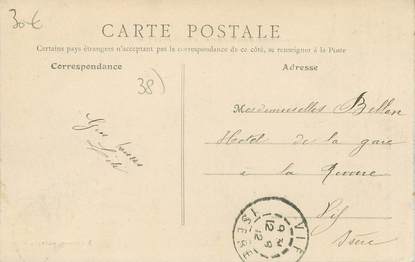 30€
CARTE POSTALE
Certains pays étrangers n'acceptant pas la correspondance de ce côté, se renseigner à la Poste
Correspondance
Adresse
38)
Mesdemoiselles Billon
Hotel de la gare
à la Rivoire
Vif
Isère
VIF
12
ISERE